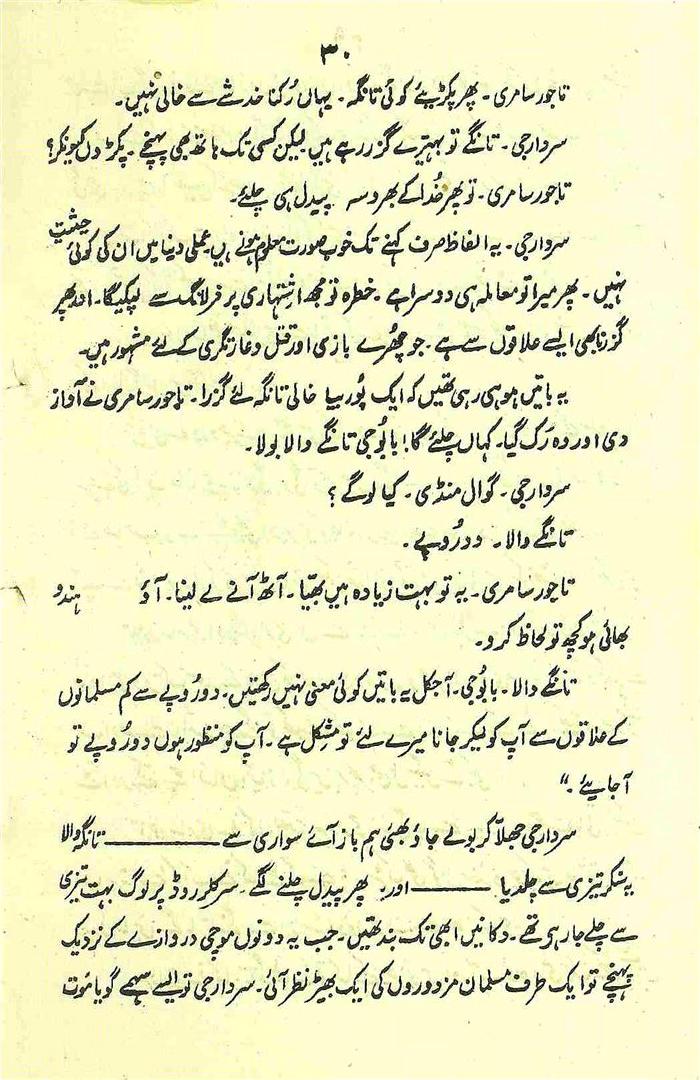 ۳۰
تاجور سامری۔ پھر پکڑیئے کوئی تانگہ۔ یہاں رُکنا خدشے سے خالی نہیں۔
سردار جی۔ تانگے تو بہتیرے گزر رہے ہیں لیکن کسی تک ہاتھ بھی پہنچے۔ پکڑوں کیونکر؟
تاجور سامری۔ تو پھر خُدا کے بھروسہ پیدل ہی چلئے۔
سردار جی۔ یہ الفاظ صرف کہنے تک خوب صورت معلوم ہوتے ہیں عملی دنیا میں ان کی کوئی حیثیت
نہیں۔ پھر میرا تو معاملہ ہی دوسرا ہے۔ خطرہ تو مجھ اشتہاری پر فرلانگ سے لپکیگا۔ اور پھر
گزرنا بھی ایسے علاقوں سے ہے۔ جو چھُرے بازی اور قتل و غارتگری کے لئے مشہور ہیں۔
یہ باتیں ہو ہی رہی تھیں کہ ایک پُوربیا خالی تانگہ لئے گزرا۔ تاجور سامری نے آواز
دی اور وہ رک گیا۔ کہاں چلئے گا! بابُوجی تانگے والا بولا۔
سردار جی۔ گوال منڈی۔ کیا لو گے؟
تانگے والا۔ دو رُوپے۔
تاجور سامری۔ یہ تو بہت زیادہ ہیں بھیّا۔ آٹھ آنے لے لینا۔ آؤ ہندو
بھائی ہو کچھ تو لحاظ کرو۔
تانگے والا۔ بابُوجی۔ آجکل یہ باتیں کوئی معنی نہیں رکھتیں۔ دو رُوپے سے کم مسلمانوں
کے علاقوں سے آپ کو لیکر جانا میرے لئے تو مشکل ہے۔ آپ کو منظور ہوں دو رُوپے تو
آجایئے۔"
سردار جی جھلّا کر بولے جاؤ بھئی ہم باز آئے سواری سے ——— تانگہ والا
یہ سُنکر تیزی سے چلدیا ——— اور یہ پھر پیدل چلنے لگے۔ سرکلر روڈ پر لوگ بہت تیزی
سے چلے جا رہی تھے۔ دکانیں ابھی تک بند تھیں۔ جب یہ دونوں موچی دروازے کے نزدیک
پہنچے تو ایک طرف مسلمان مزدوروں کی ایک بھیڑ نظر آئی۔ سردار جی تو ایسے سہمے گویا موت